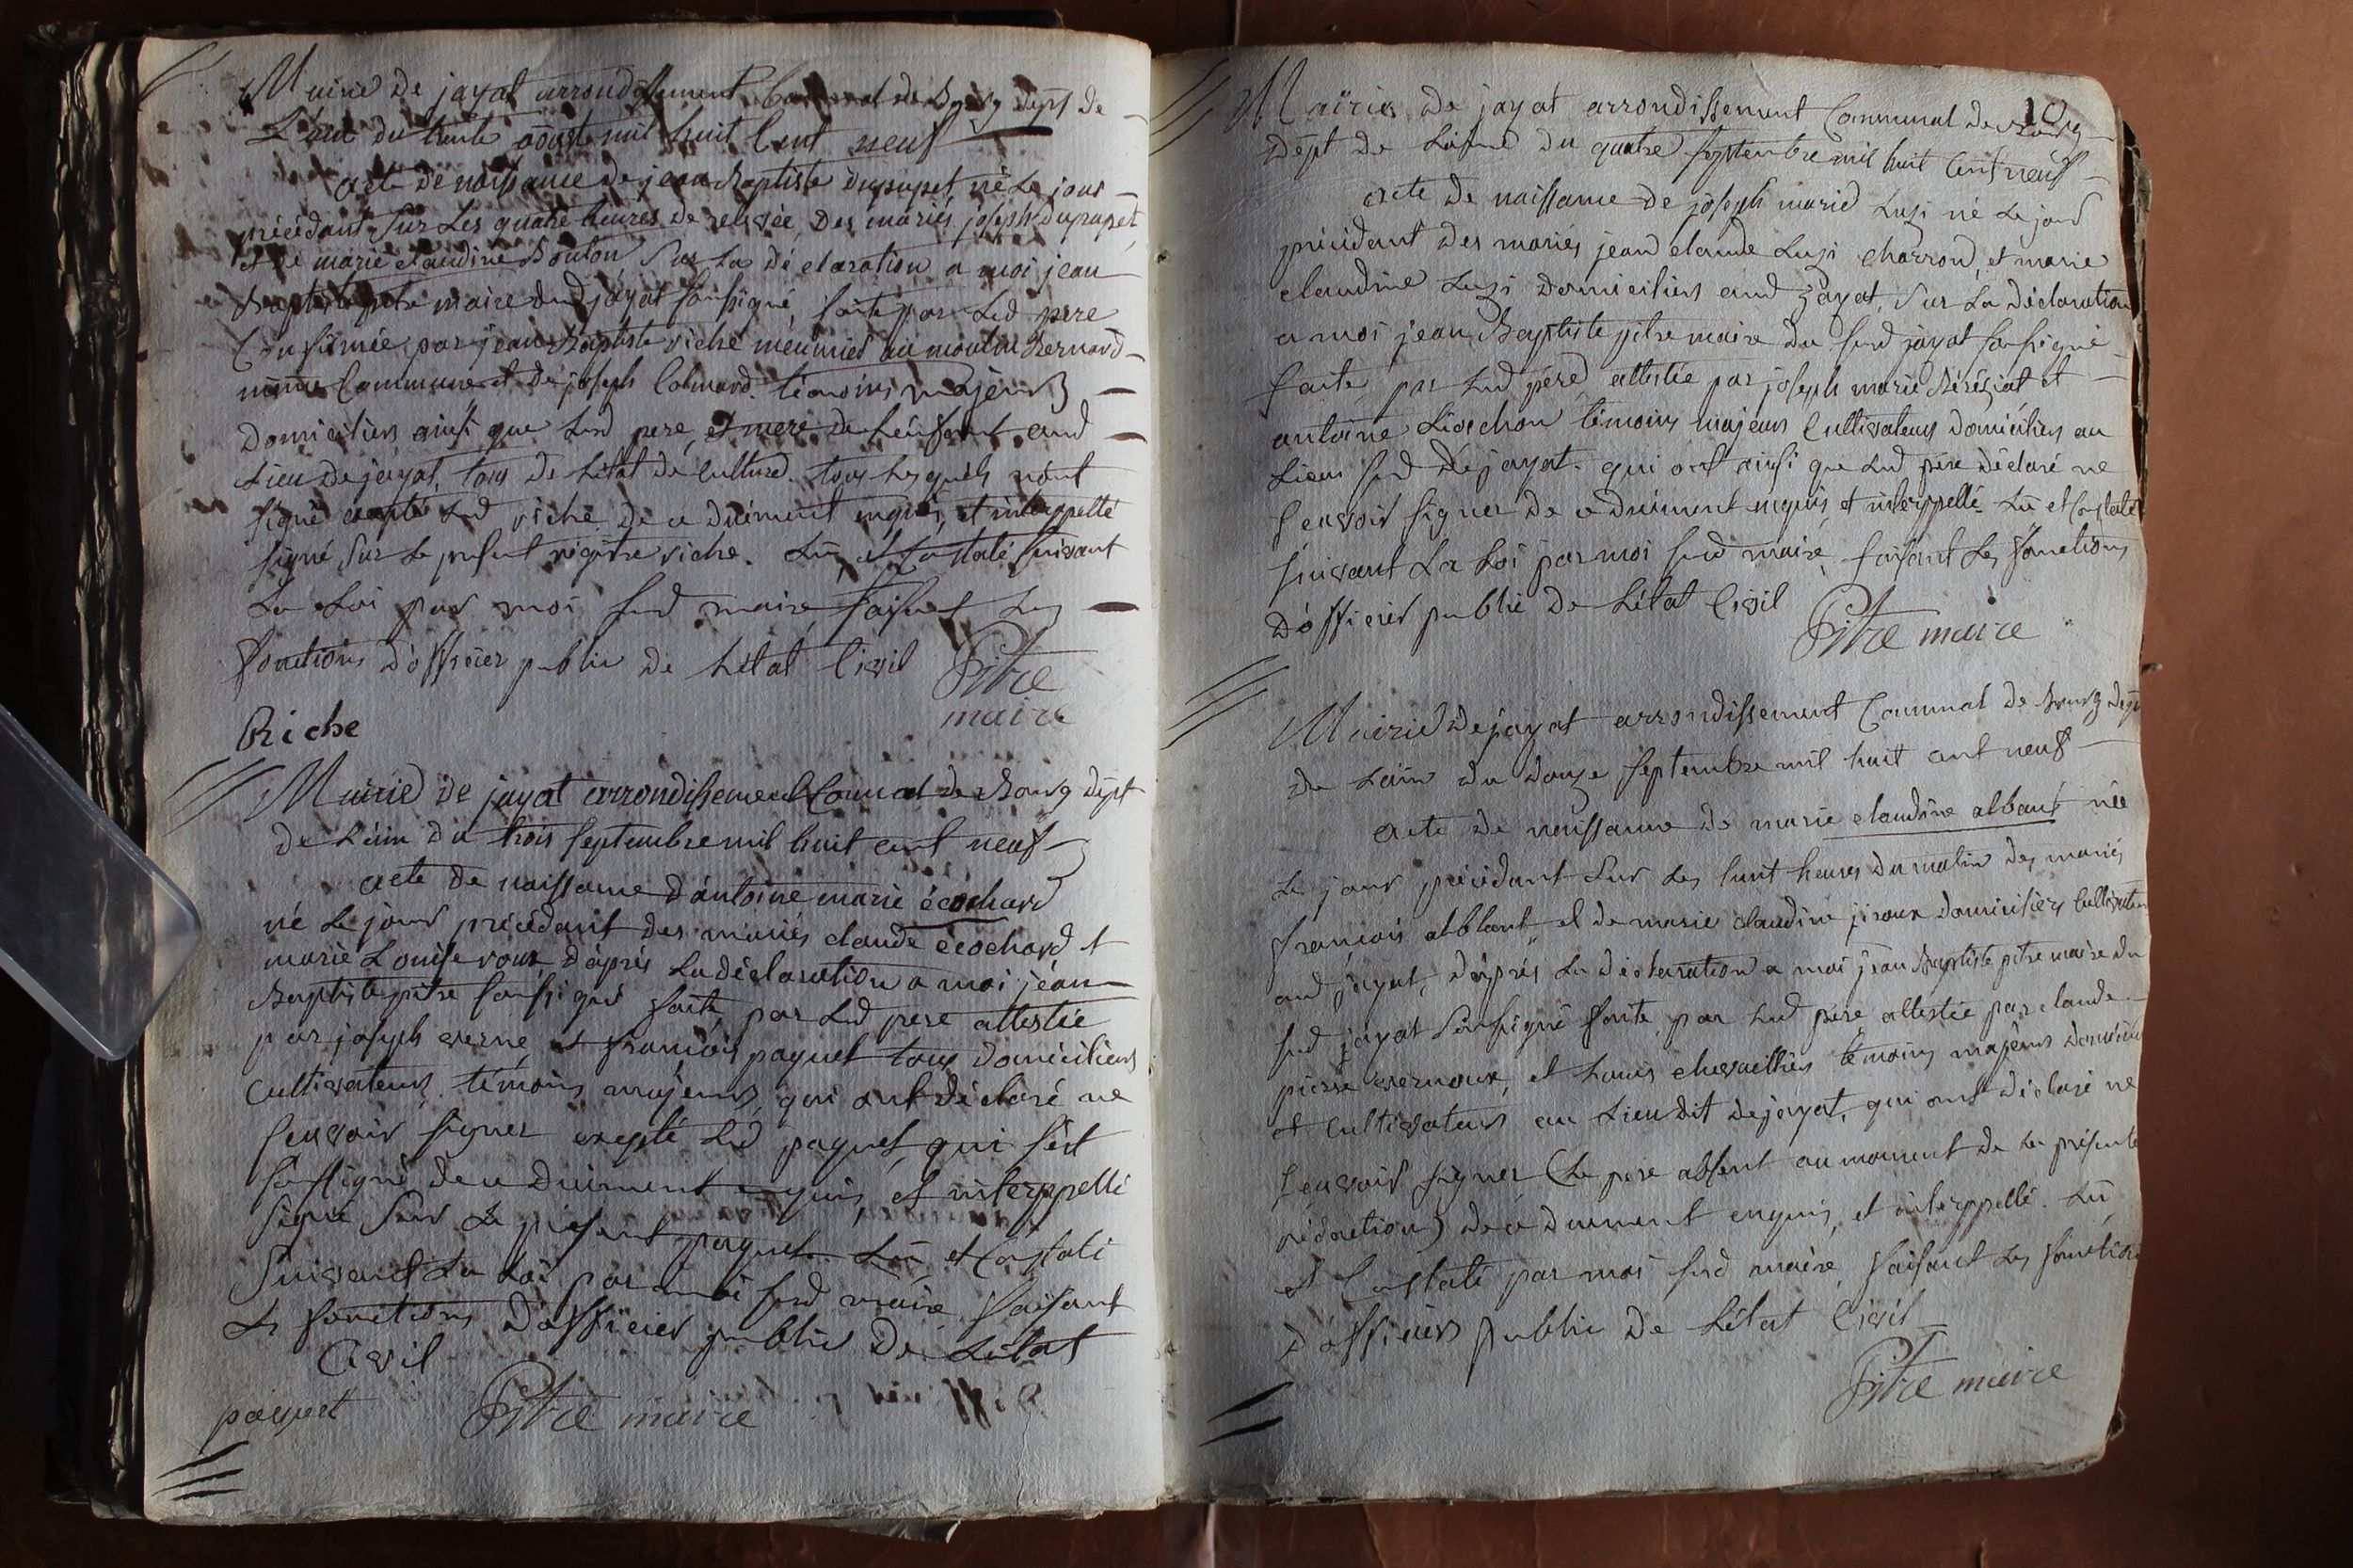 Mairie de jayat arrondissement Communal de Bourg dept de
L'ain du trente aoust mil huit Cent neuf
acte de naissance de jean Baptiste dupupet, né Le jour
précédant Sur Les quatre heures de relevée, Des mariés joseph dupupet
et de marie claudine Bouton Sur La déclaration a moi jean
Baptiste pitre maire dud jayat soussigné, faite par Led pere
Confirmée par jean Baptiste riche meunier au moulin Bernard
même Commune et de joseph Colmard témoins majeurs
Domiciliers ainsi que Led pere, et mere de L'enfant aud
Lieu de jayat, tous de L'état de culture. tous Lesquels n'ont
signé excepté Led riche de ce duëment enquis, et interppellé
signé Sur Le present régitre riche. Lû, et Constaté suivant
La Loi par moi sud maire, faisant Les
fonctions D'officier public de L'état Civil Pitre
maire
Riche
Mairie de jayat arrondissement Communal de Bourg dépt
de L'ain du trois septembre mil huit cent neuf
acte de naissance d'antoine marie écochard
né Le jour précédant des mariés claude écochard et
marie Louise roux d'après La déclaration a moi jéan
Baptiste pitre soussigné faite par Led pere attestée
par joseph verne, et francois paquet tous domiciliers
Cultivateurs, témoins majeurs, qui ont déclaré ne
sçavoir signer excepté Led paquet, qui s'est
soussigné de ce duëment enquis, et interppellé
signé Sur Le présent paquet Lû et Constaté
Suivant La Loi par moi sud maire faisant
Les fonctions D'officier public De L'état
Civil
paquet Pitre maire
10
Mairie De jayat arrondissement Communal De Bourg
Dépt De L'ain du quatre septembre mil huit Cent neuf
acte De naissance de joseph marie Luzi né Le jour
précédant Des mariés jean claude Luzi charron, et marie
claudine Luzi Domiciliers aud Jayat, Sur La Déclaration
a moi jean Baptiste pitre maire du sud jayat soussigné
faite par Led pere, attestée par joseph marie Béréziat et
antoine Liochon témoins majeurs Cultivateurs Domiciliers au
Lieu sud De jayat. qui ont ainsi que Led père Déclaré ne
sçavoir signer De ce duëment enquis, et interppellé Lû et Constaté
suivant La Loi par moi sud maire, faisant Les fonctions
D'officier public De L'état Civil Pitre maire
Mairie De jayat arrondissement Communal de Bourg dept
De L'ain du Douze septembre mil huit cent neuf
acte de naissance de marie claudine alban née
Le jour précédant Sur Les huit heures du matin des mariés
francois alblant et de marie claudine Domiciliers Cultivateurs
aud jayat, D'après La déclaration a moi jean Baptiste pitre maire du
sud jayat soussigné faite par Led père attestée par claude
pierre vernoux, et Louis chevaillier témoins majeurs
et cultivateurs au Lieu dit De jayat, qui ont déclaré ne
sçavoir signer (Le pere absent au moment de La présente
rédaction) de ce duement enquis, et interppellé. Lû
et Constaté par moi sud maire, faisant Les fonctions
D'officier public De L'état Civil
Pitre maire